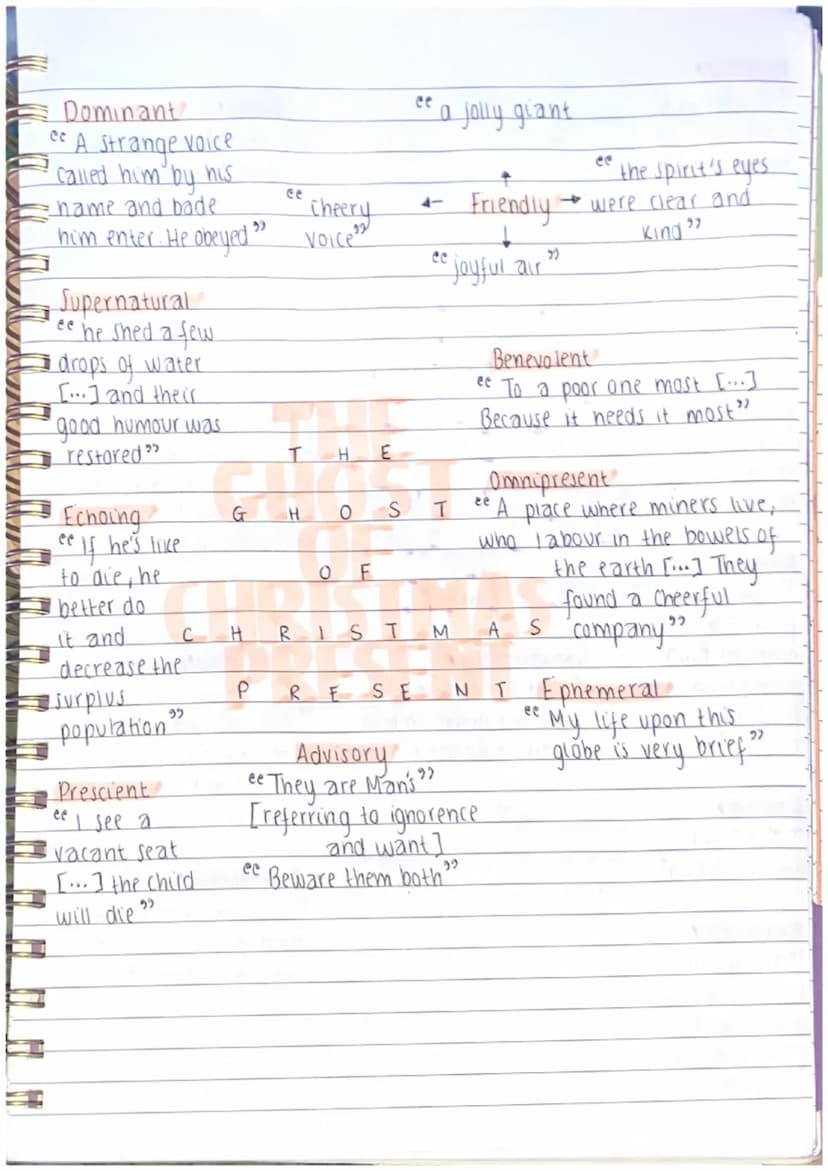 Dominant
“ A strange voice
called him by his
name and bade
him enter. He obeyed ”
“ a jolly giant
“ cheery
voice”
← Friendly →
“ the spirit's eyes
were clear and
kind ”
“ joyful air ”
Supernatural
“ he shed a few
drops of water
[...] and their
good humour was
restored ”
Benevolent
“ To a poor one most [...]
Because it needs it most”
Omnipresent
“ A place where miners live,
who labour in the bowels of
the earth [...] They
found a cheerful
company ”
Echoing
“ If he's like
to die, he
better do
it and
decrease the
surplus
population ”
THE
GHOST
OF
CHRISTMAS
PRESENT
T H E
G H O S T
O F
C H R I S T M A S
P R E S E N T
Ephemeral
“ My life upon this
globe is very brief ”
Advisory
“ They are Man's ”
[referring to ignorence
and want]
“ Beware them both”
Prescient
“ I see a
vacant seat
[...] the child
will die ”